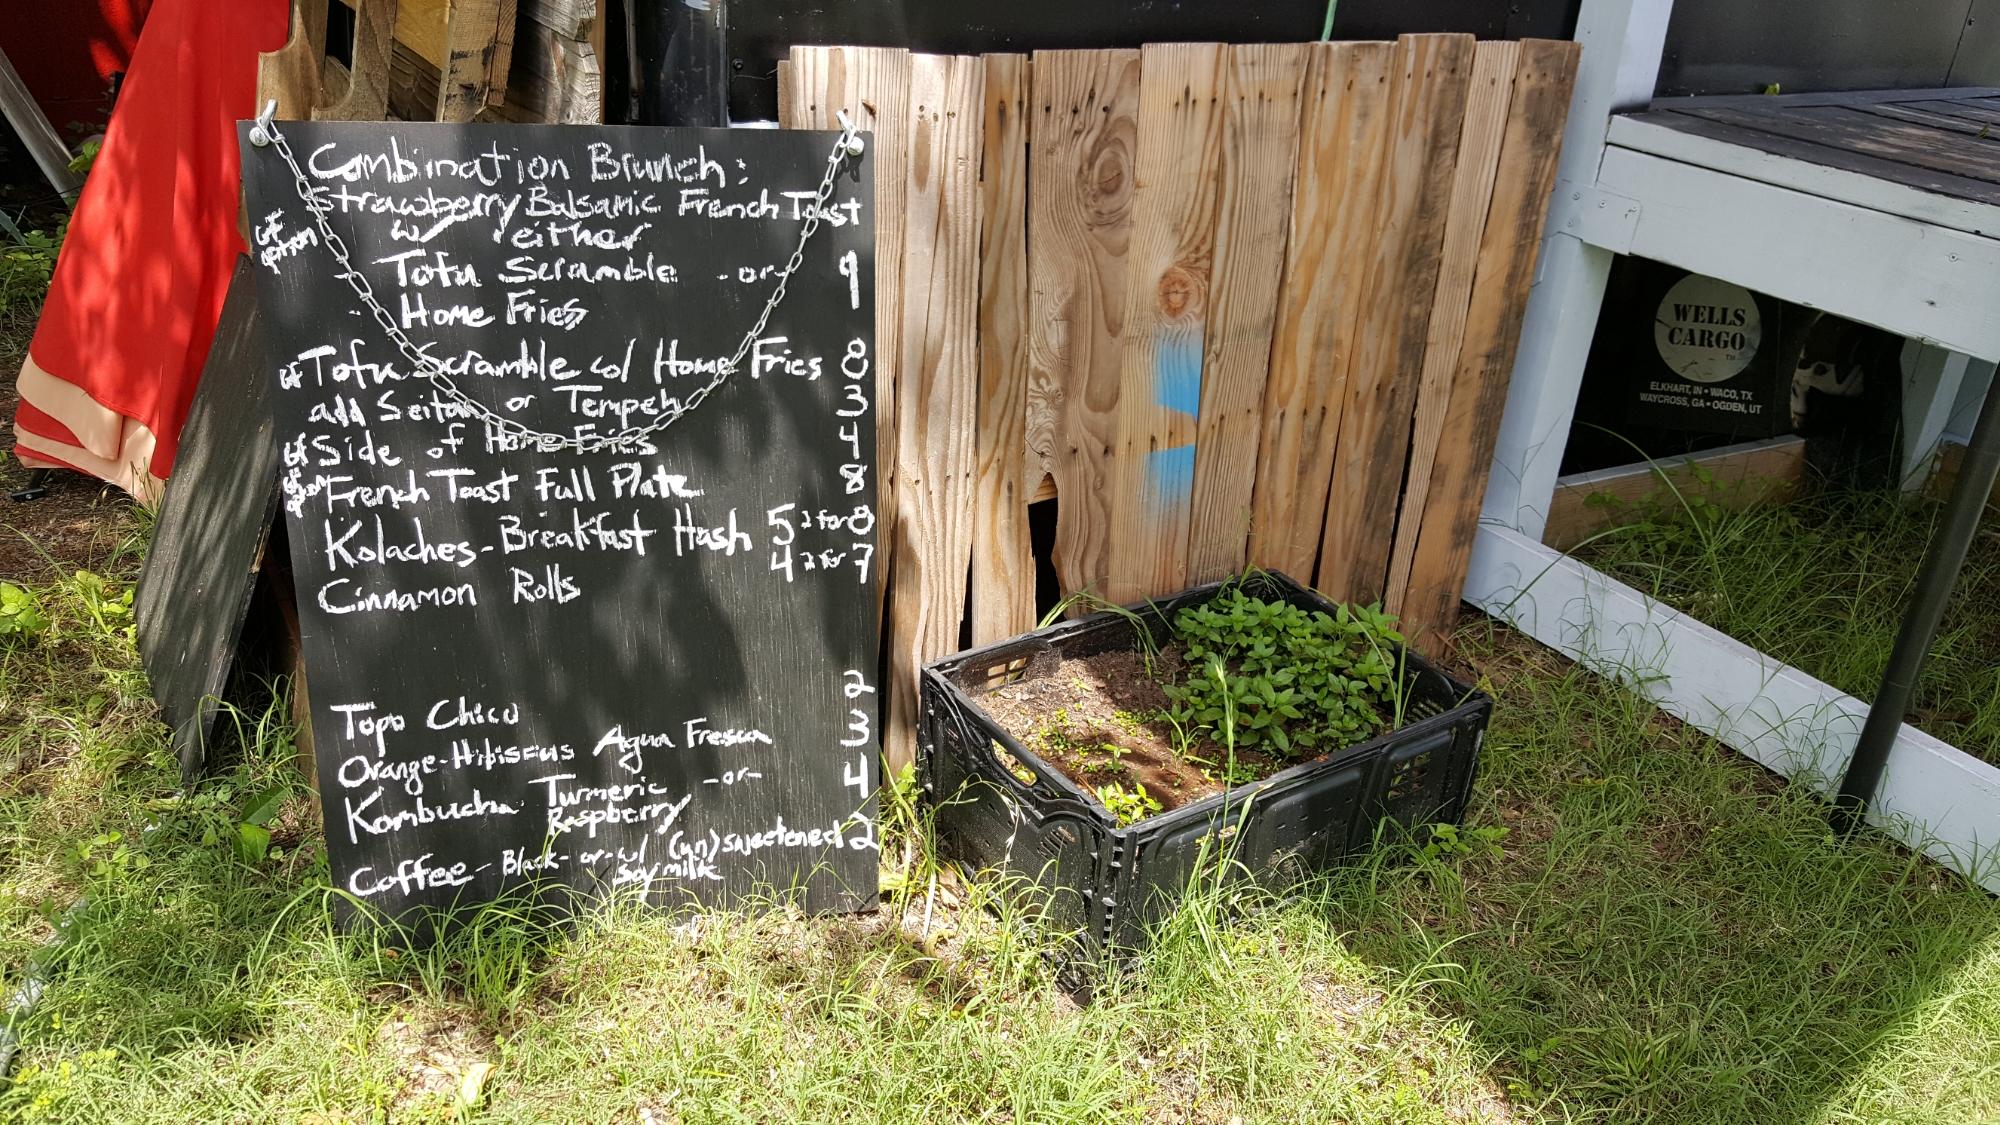 Combination Brunch:
Strawberry Balsamic French Toast
GF option
w/ either
- Tofu Scramble -or- 9
- Home Fries
GF Tofu Scramble w/ Home Fries 8
add Seitan or Tempeh 3
GF Side of Home Fries 4
GF option French Toast Full Plate 8
Kolaches - Breakfast Hash 5 2 for 8
Cinnamon Rolls 4 2 for 7
Topo Chico 2
Orange-Hibiscus Agua Fresca 3
Kombucha Turmeric -or- 4
Raspberry
Coffee - Black - or - w/ (un)sweetened 2
Soy milk
WELLS
CARGO
TM
ELKHART, IN • WACO, TX
WAYCROSS, GA • OGDEN, UT